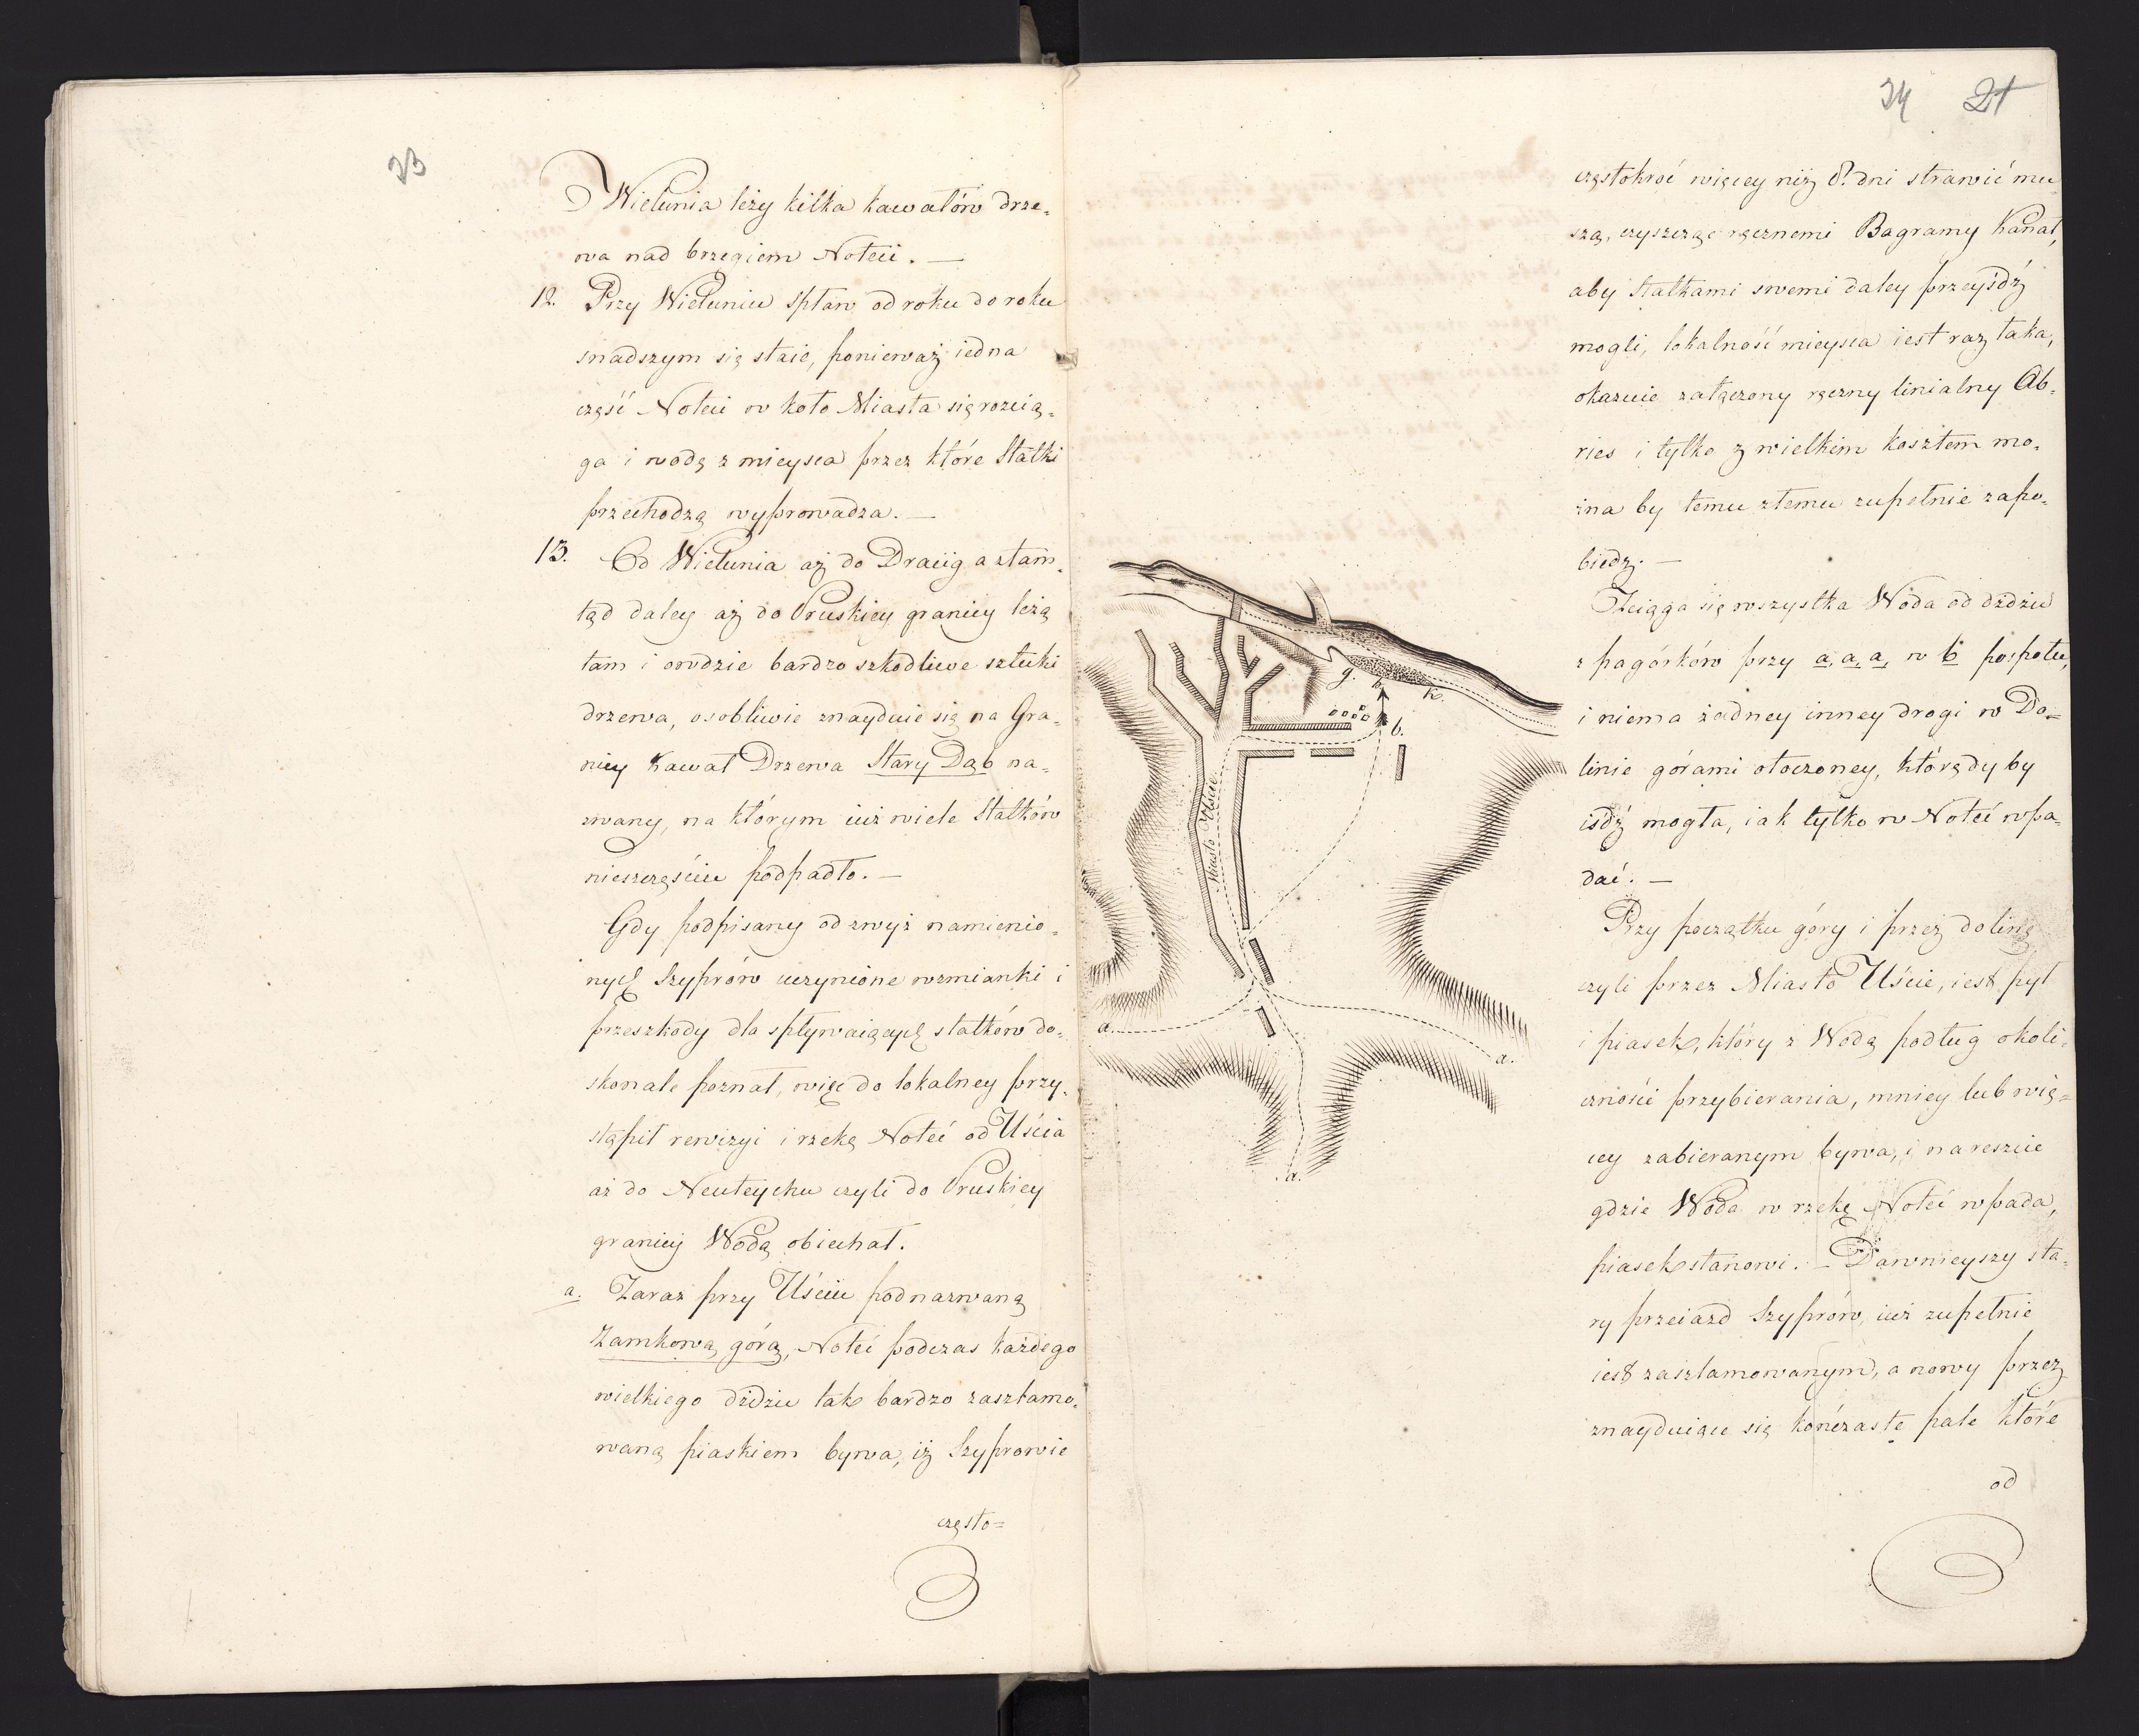 23
Wielunia leży kilka kawałów drze-
wa nad brzegiem Noteci. —
12. Przy Wieluniu spław od roku do roku
snadszym się staie, ponieważ iedna
część Noteci w koło Miasta się rozcią-
ga i wodę z mieysca przez które Statki
przechodzą wyprowadza. —
13. Od Wielunia aż do Draiig a ztam-
tąd daley aż do Pruskiey granicy leżą
tam i owdzie bardzo szkodliwe sztuki
drzewa, osobliwie znayduie się na Gra-
nicy Kawał Drzewa Stary Dąb na-
zwany, na którym iuż wiele Statków
nieszczęściu podpadło. —
Gdy podpisany od zwyż namienio-
nych Szyprów uczynione wzmianki i
przeszkody dla spływaiących statków do-
skonale poznał, więc do lokalney przy-
stąpił rewizyi i rzekę Noteć od Uścia
aż do Neuteychu czyli do Pruskiey
granicy Wodą obiechał.
a. Zaraz przy Uściu pod nazwaną
Zamkową górą, Noteć podczas każdego
wielkiego dżdżu tak bardzo zaszlamo-
waną piaskiem bywa, iż Szyprowie
często=
24 21
częstokroć więcey niż 8. dni strawić mu
szą, czyszcząc ręcznemi Bagramy Kanał,
aby Statkami swemi daley przeyśdź
mogli, lokalność mieysca iest raz taka,
okazuie załączony ręczny linialny Ab-
ries i tylko z wielkiem kosztem mo-
żna by temu złemu zupełnie zapo-
biedz. —
Ściąga się wszystka Woda od dżdżu
z pagórków przy a, a, a, w b pospołu,
i niema żadney inney drogi w Do-
linie górami otoczoney, którędy by
iśdź mogła, iak tylko w Noteć wpa-
dać. —
Przy początku góry i przez dolinę
czyli przez Miasto Uście, iest pył
i piasek, który z Wodą podług okoli-
czności przybierania, mniey lub wię-
cey zabieranym bywa, i nareszcie
gdzie Woda w rzekę Noteć wpada,
piasek stanowi. — Dawnieyszy sta-
ry przeiazd Szyprów, iuż zupełnie
iest zaszlamowanym, a nowy przez
znayduiące się kończaste pale które
od
g. h. k.
b.
Miasto Uście
a.
a.
a.